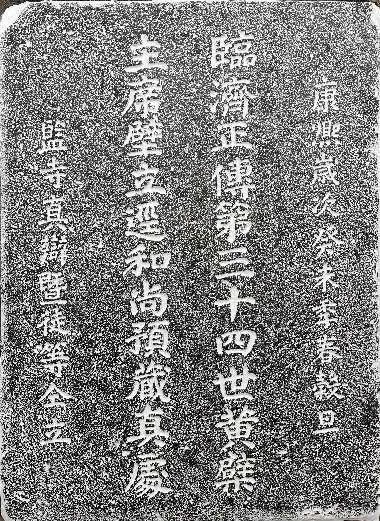 康熙歲次癸未季春穀旦
臨濟正傳第三十四世黃檗
主席壁立遥和尚預藏真處
監寺真辯暨徒等仝立